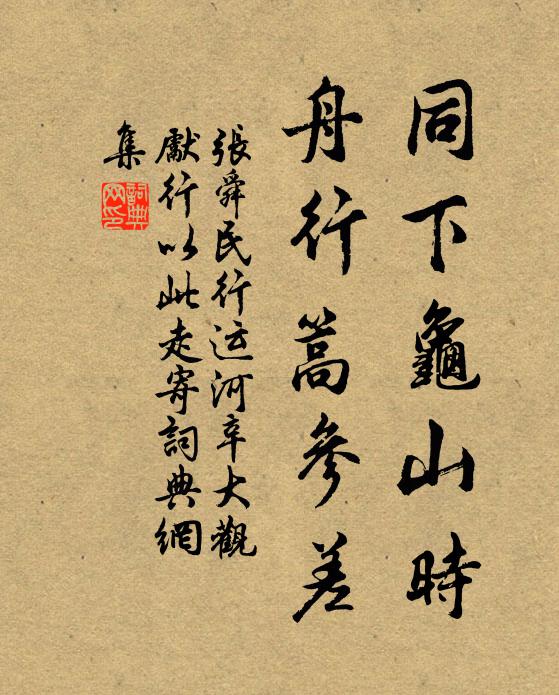 同下龜山時
舟行篙參差
張舜民行运河辛大觀
獻行以此走寄詞典網
集
詞典
网印